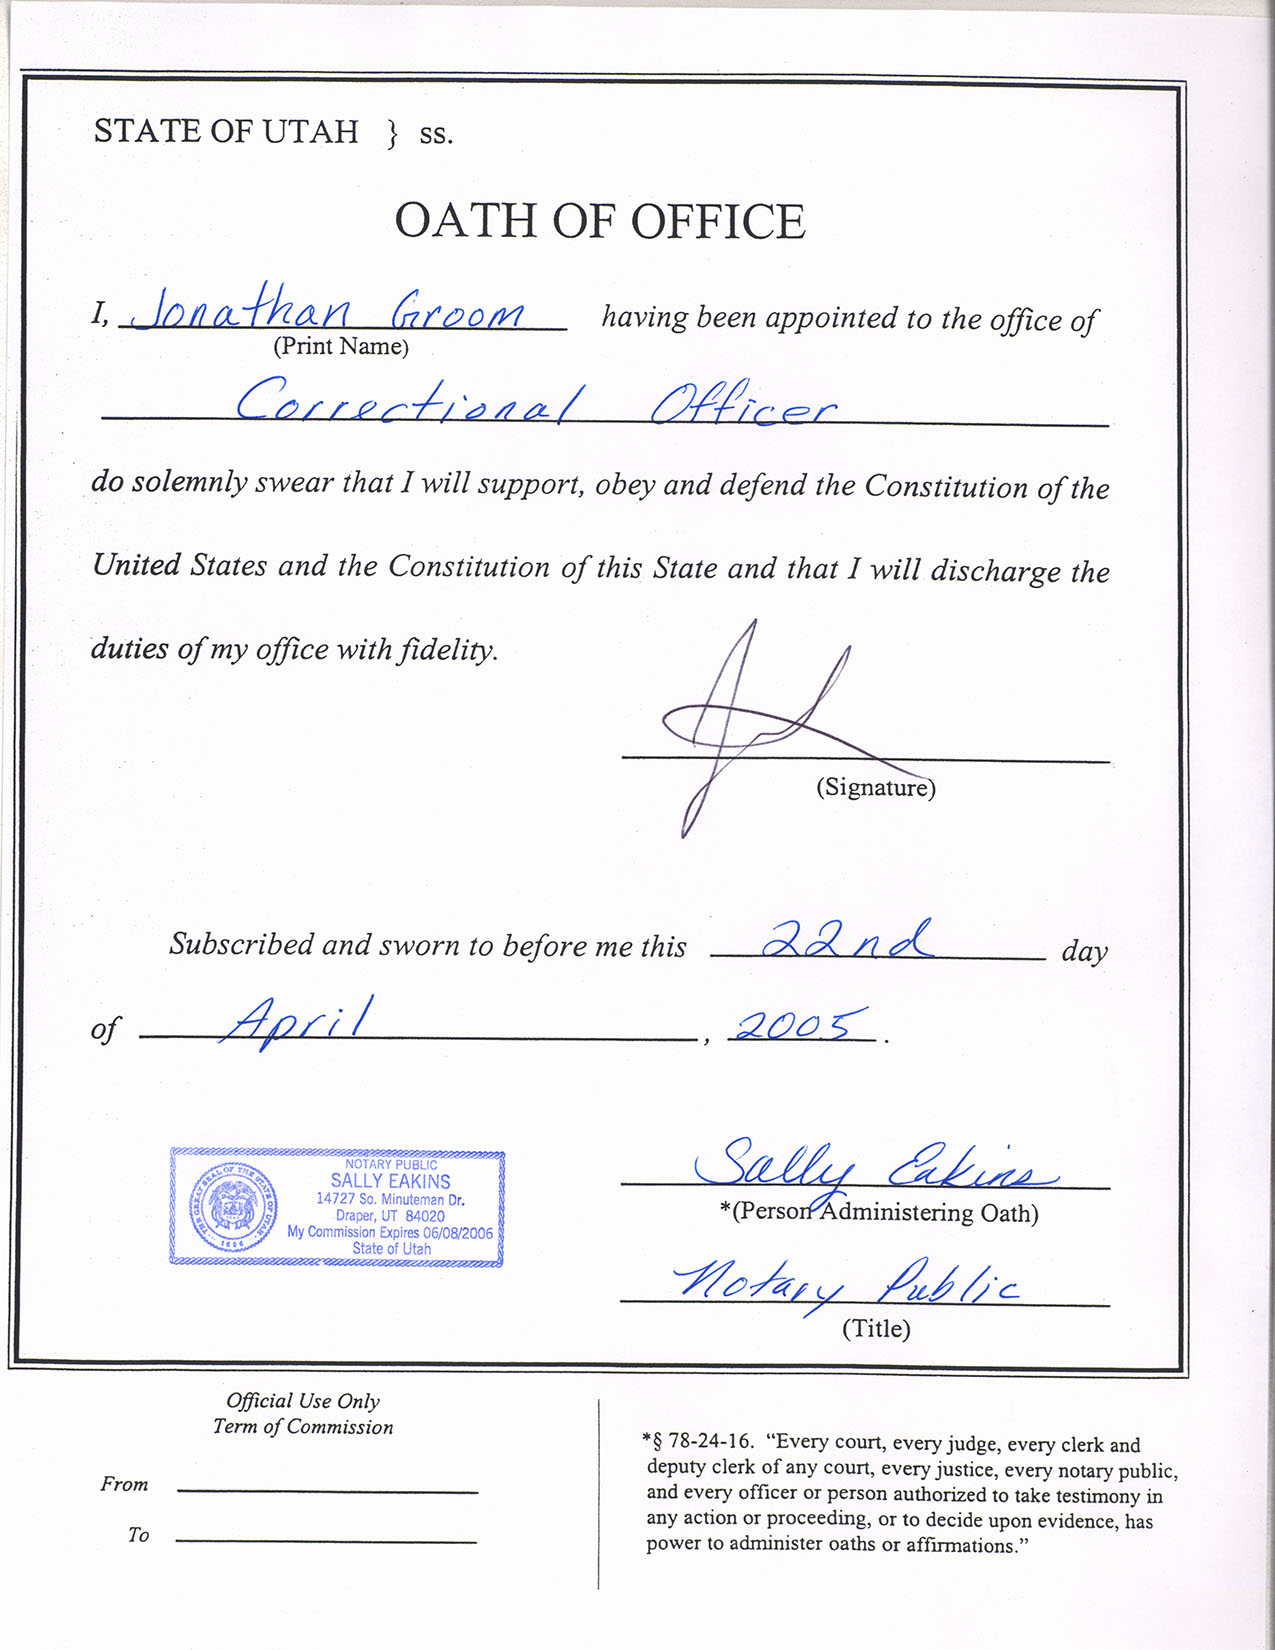 STATE OF UTAH } ss.
OATH OF OFFICE
I, Jonathan Groom having been appointed to the office of
(Print Name)
Correctional Officer
do solemnly swear that I will support, obey and defend the Constitution of the
United States and the Constitution of this State and that I will discharge the
duties of my office with fidelity.
(Signature)
Subscribed and sworn to before me this 22nd day
of April, 2005.
THE GREAT SEAL OF THE STATE OF UTAH
1896
NOTARY PUBLIC
SALLY EAKINS
14727 So. Minuteman Dr.
Draper, UT 84020
My Commission Expires 06/08/2006
State of Utah
Sally Eakins
*(Person Administering Oath)
Notary Public
(Title)
Official Use Only
Term of Commission
From
To
*§ 78-24-16. “Every court, every judge, every clerk and
deputy clerk of any court, every justice, every notary public,
and every officer or person authorized to take testimony in
any action or proceeding, or to decide upon evidence, has
power to administer oaths or affirmations.”